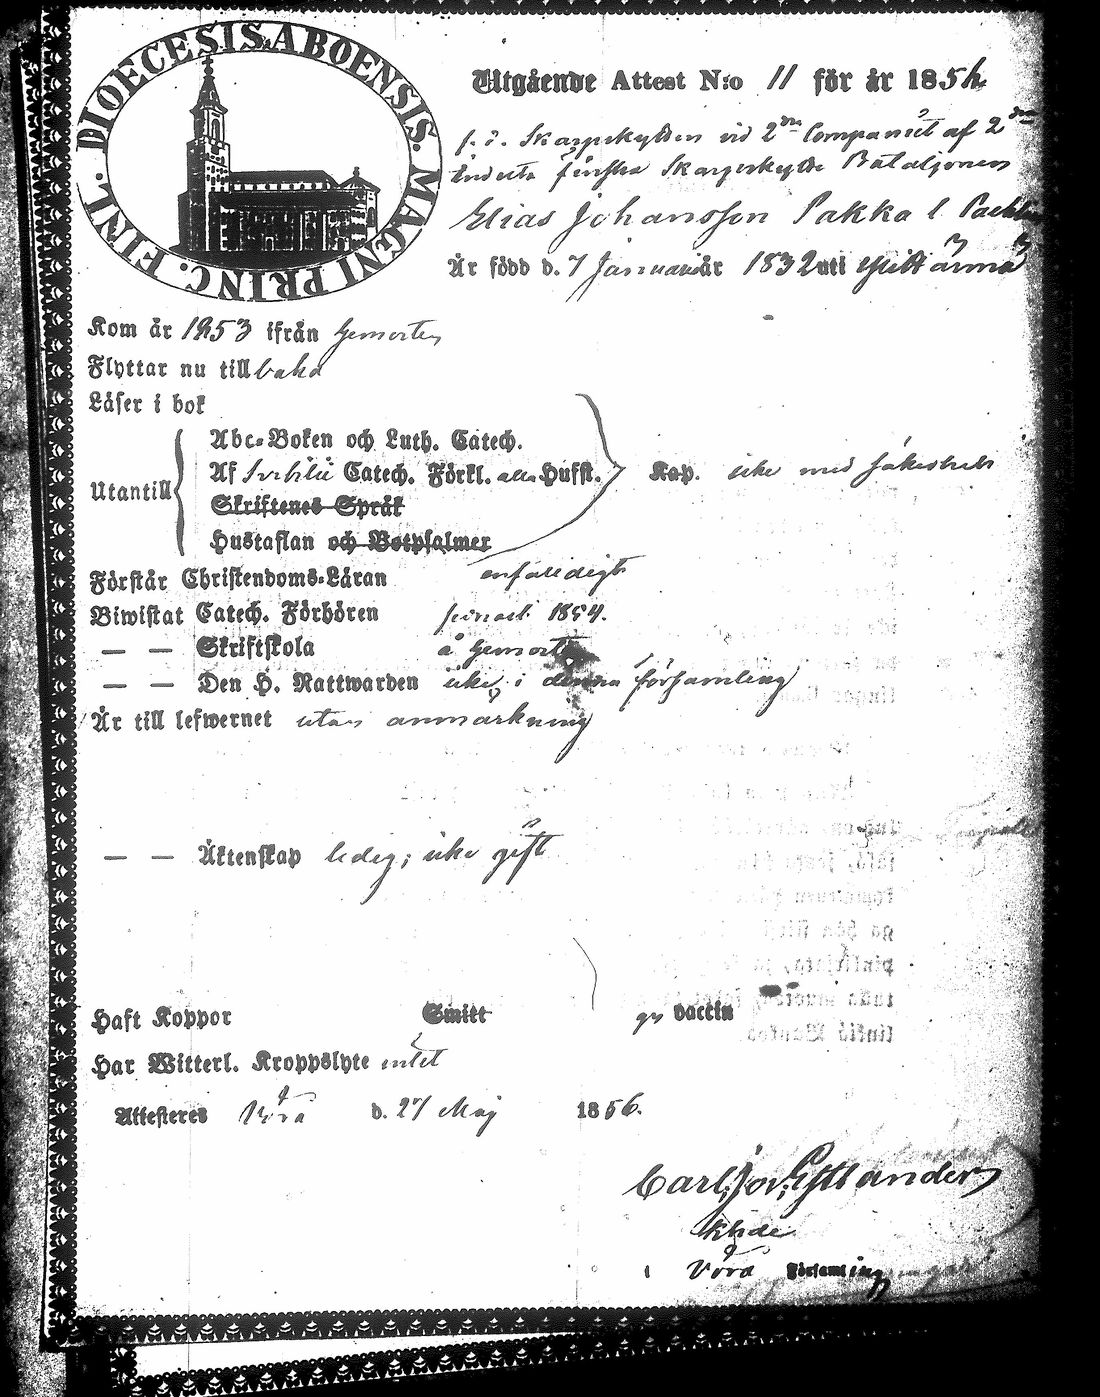 DIOECESIS ABOENSIS. MAGNI PRINC. FINL.
Utgående Attest N:o 11 för år 1856
f. d. Skarpskytten vid 2dra Companiet af 2dra
Indelta finska Skarpskytte Bataljonen
Elias Johansson Pakka l.
Är född d. 7 Januari år 1832 uti
Kom år 1853 ifrån hemorten
Flyttar nu tillbaka
Läser i bok
Utantill
Abc-Boken och Luth. Catech.
Af Svebilii Catech. Förkl. alla Hufst. Kap. icke med säkerhet
Skriftenes Språk
Hustaflan och Botpsalmer
Förstår Christendoms-Läran enfaldigt
Biwistat Catech. Förhören 1854.
— — Skriftskola å hemorten
— — Den H. Nattwarden icke i denna församling
Är till lefwernet utan anmärkning
— — Äktenskap ledig; icke gift
Haft Koppor Smitt gn vaccin
Har Witterl. Kroppslyte intet
Attesteres Vörå d. 27 Maj 1856.
Carl
i Vörå Församling